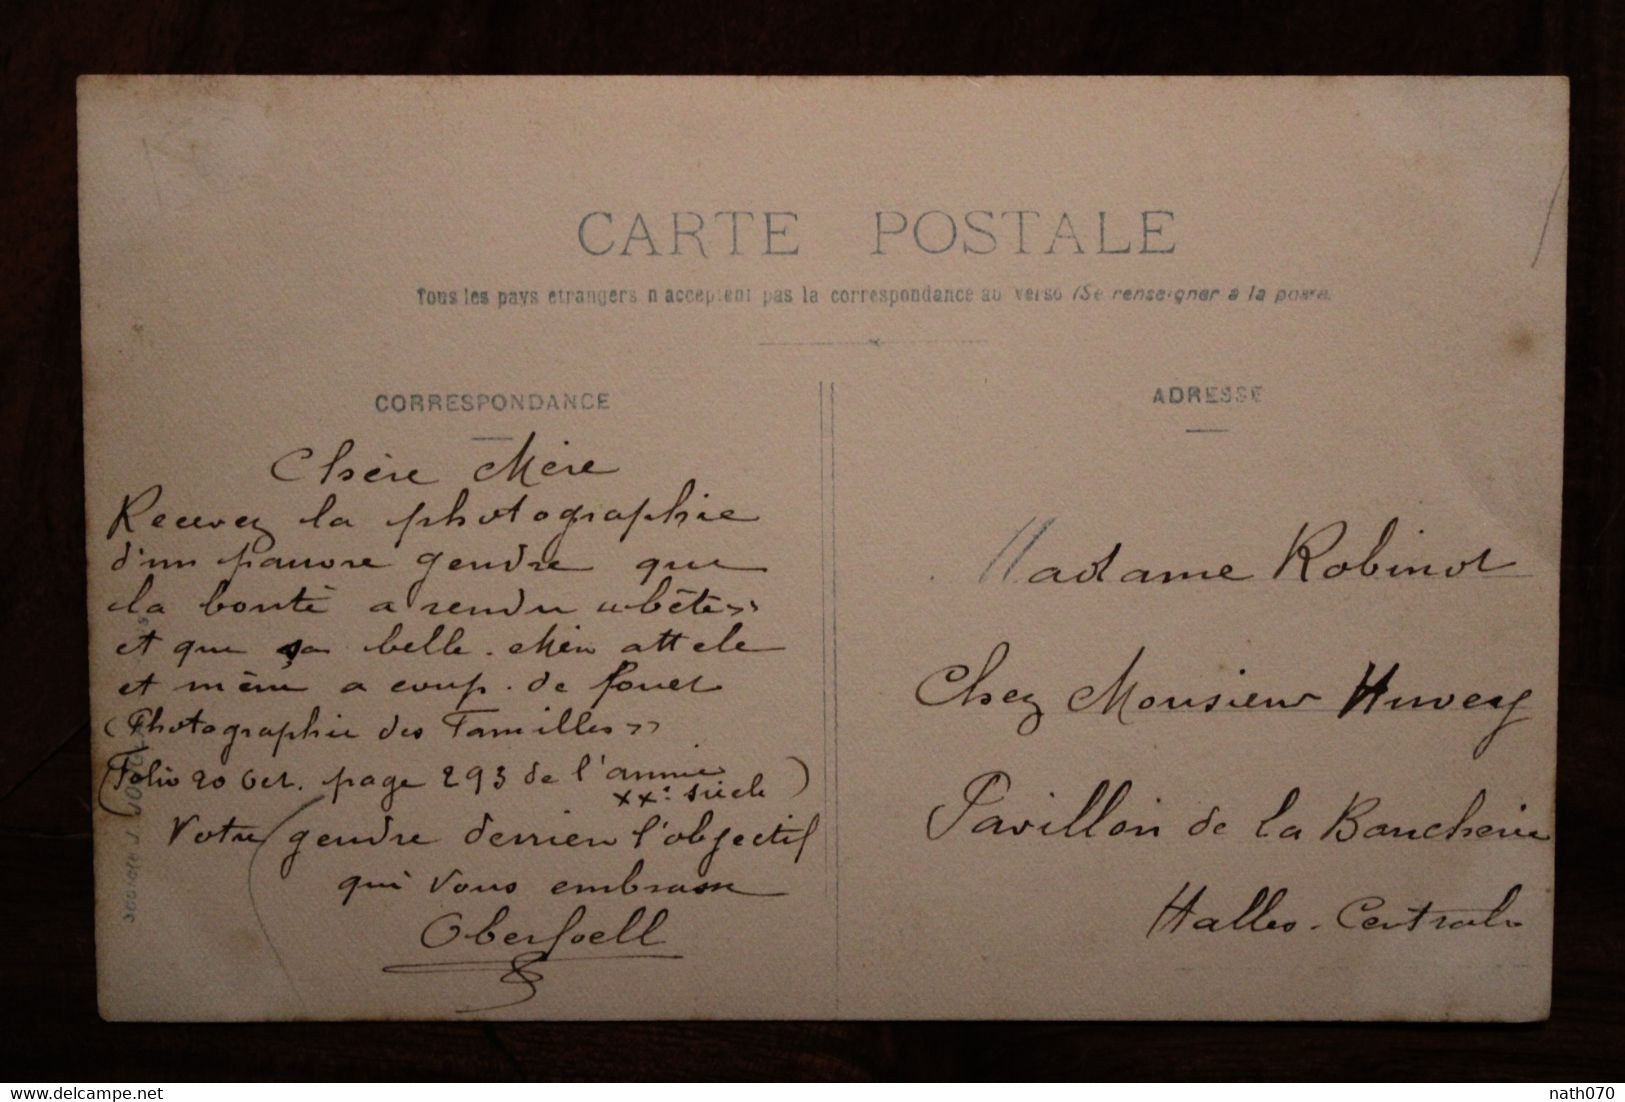 CARTE POSTALE
Tous les pays etrangers n acceptent pas la correspondance au verso (Se renseigner a la poste
CORRESPONDANCE
Chère Mère
Recevez la photographie
d'un pauvre gendre que
la bonté a rendu "bête"
et que sa belle-Mère attele
et même a coup de fouet
(Photographie des Familles"
(Folio 20 Oct. page 293 de l'année
XXe siècle)
Votre gendre derrien l'objectif
qui vous embrasse
ADRESSE
Madame Robinot
Chez Monsieur Huvey
Pavillon de la Boucherie
Halles-Centrale
www.delcampe.net
nath070